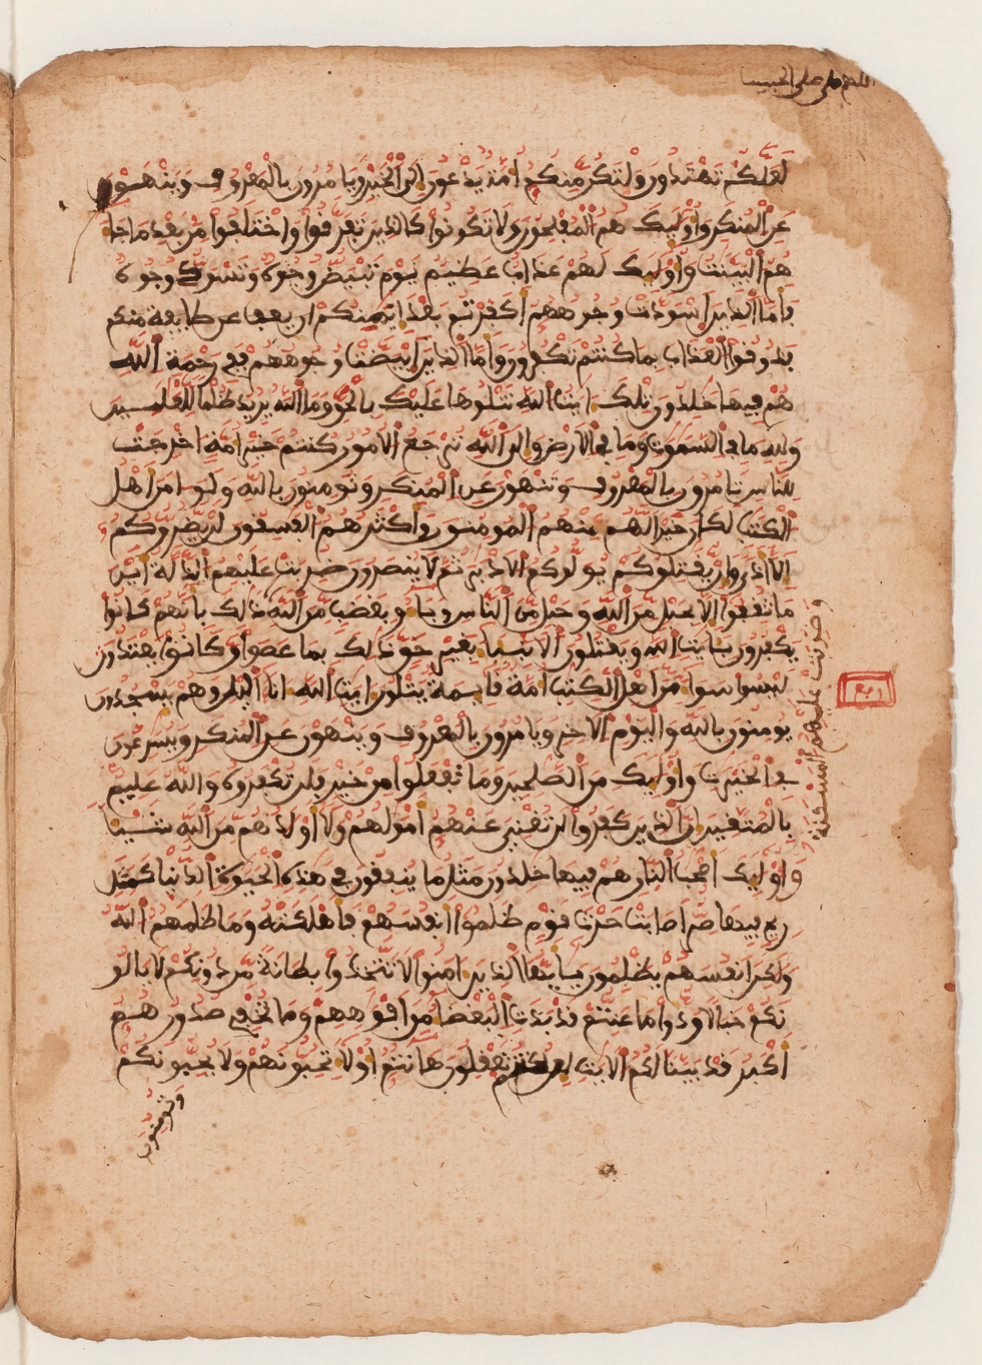 اللهم صل على الحبيب
لعلكم تهتدون ولتكن منكم امة يدعون الى الخير ويامرون بالمعروف وينهون
عن المنكر واوليك هم المفلحون ولا تكونوا كالذين تفرقوا واختلفوا من بعد ما جا
هم البينت واوليك لهم عذاب عظيم يوم تبيض وجوه وتسود وجوه
فاما الذين اسودت وجوههم اكفرتم بعد ايمنكم ان يعف عن طايفة منكم
فذوقوا العذاب بما كنتم تكفرون واما الذين ابيضت وجوههم ففي رحمة الله
هم فيها خلدون تلك ايت الله نتلوها عليك بالحق وما الله يريد ظلما للعلمين
ولله ما في السموت وما في الارض والى الله ترجع الامور كنتم خير امة اخرجت
للناس تامرون بالمعروف وتنهون عن المنكر وتومنون بالله ولو امن اهل
الكتب لكان خيرا لهم منهم المومنون واكثرهم الفسقون لن يضروكم
الا اذى وان يقتلوكم يولوكم الادبر ثم لا ينصرون ضربت عليهم الذلة اين
ما ثقفوا الا بحبل من الله وحبل من الناس وباو بغضب من الله ذلك بانهم كانوا
يكفرون بايت الله ويقتلون الانبيا بغير حق ذلك بما عصوا وكانوا يعتدون
ليسوا سوا من اهل الكتب امة قايمة يتلون ايت الله انا اليل وهم يسجدون
يومنون بالله واليوم الاخر ويامرون بالمعروف وينهون عن المنكر ويسرعون
في الخيرت واوليك من الصلحين وما تفعلوا من خير فلن تكفروه والله عليم
بالمتقين ان الذين كفروا لن تغني عنهم امولهم ولا اولدهم من الله شيا
واوليك اصحب النار هم فيها خلدون مثل ما ينفقون في هذه الحيوة الدنيا كمثل
ريح فيها صر اصابت حرث قوم ظلموا انفسهم فاهلكته وما ظلمهم الله
ولكن انفسهم يظلمون يايها الذين امنوا لا تتخذوا بطانة من دونكم لا يالو
نكم خبالا ودوا ما عنتم قد بدت البغضا من افوههم وما تخفي صدورهم
اكبر قد بينا لكم الايت ان كنتم تعقلون هانتم اولا تحبونهم ولا يحبونكم
وتومنون
وضربت عليهم المسكنة